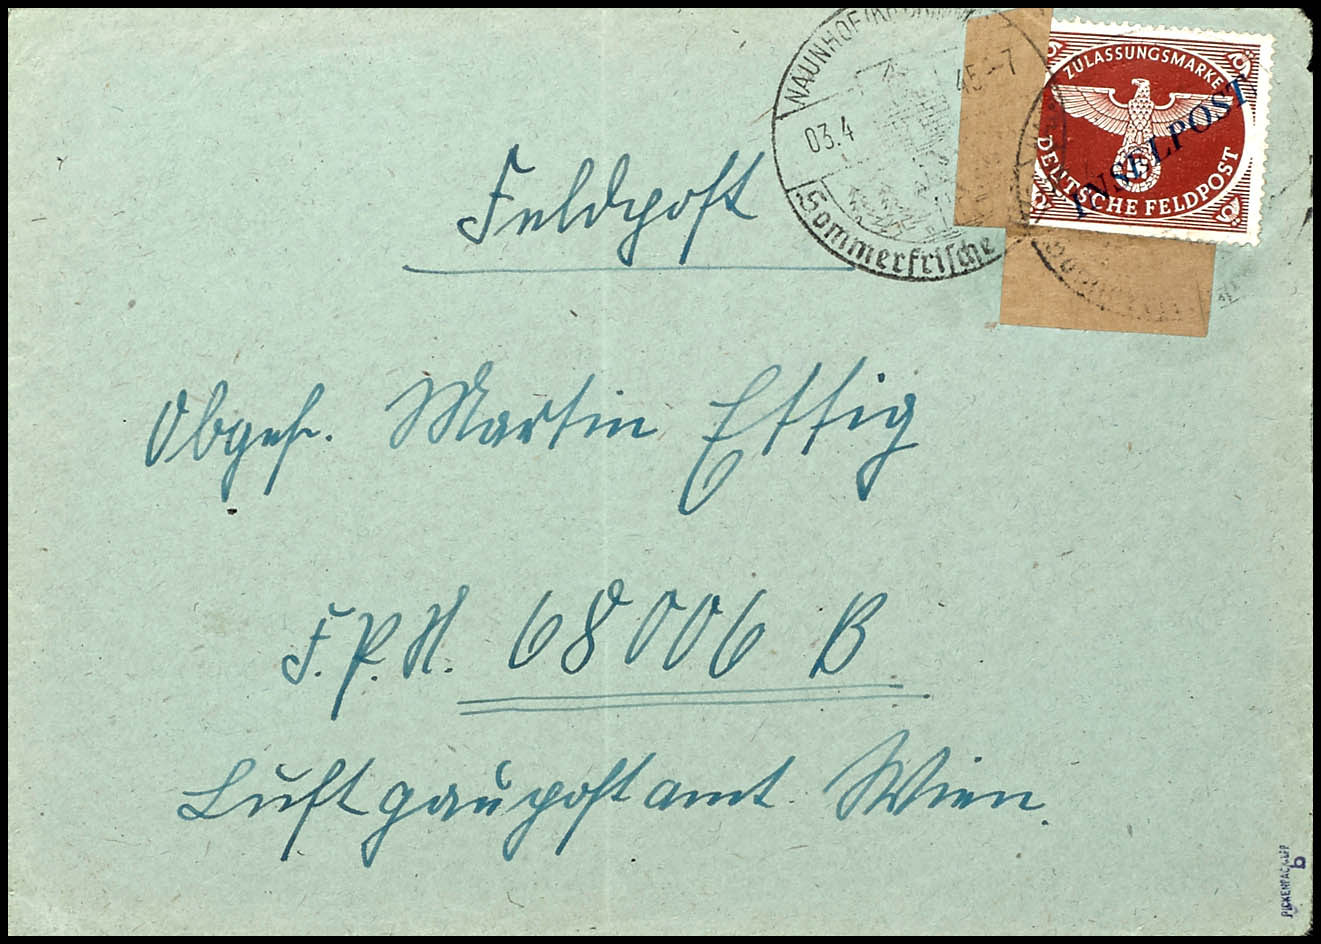 NAUNHOF
03.4 45-7
Sommerfrische
ZULASSUNGSMARKE
DEUTSCHE FELDPOST
INSELPOST
Feldpost
Obgefr. Martin Ettig
F.P.N. 68006 B
Luftgaupostamt Wien.
b